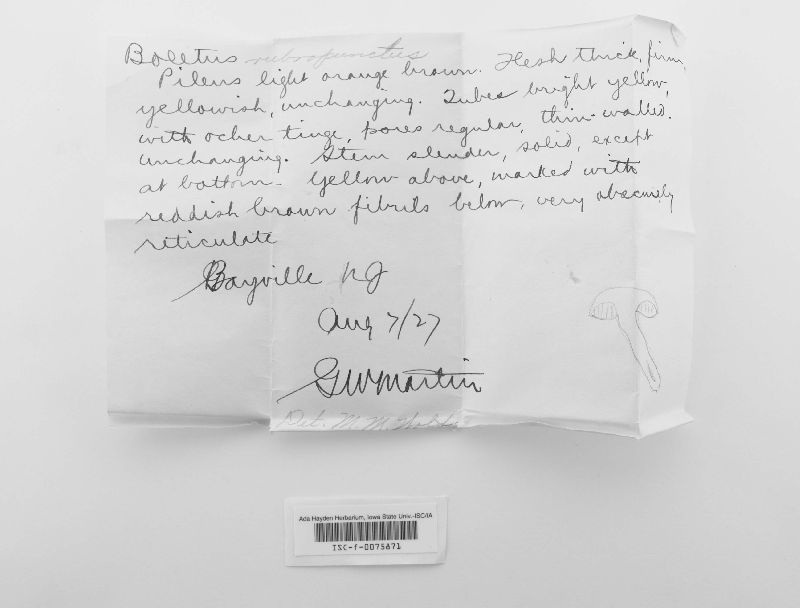 Boletus rubropunctus
Pileus light orange brown. Flesh thick, firm,
yellowish, unchanging. Tubes bright yellow,
with ocher tinge, pores regular, thin-walled.
unchanging. Stem slender, solid, except
at bottom - Yellow above, marked with
reddish brown fibrils below, very obscurely
reticulate
Bayville NJ
Aug 7/27
GW Martin
Det. M. M.
Ada Hayden Herbarium, Iowa State Univ.-ISC/IA
ISC-f-0075871